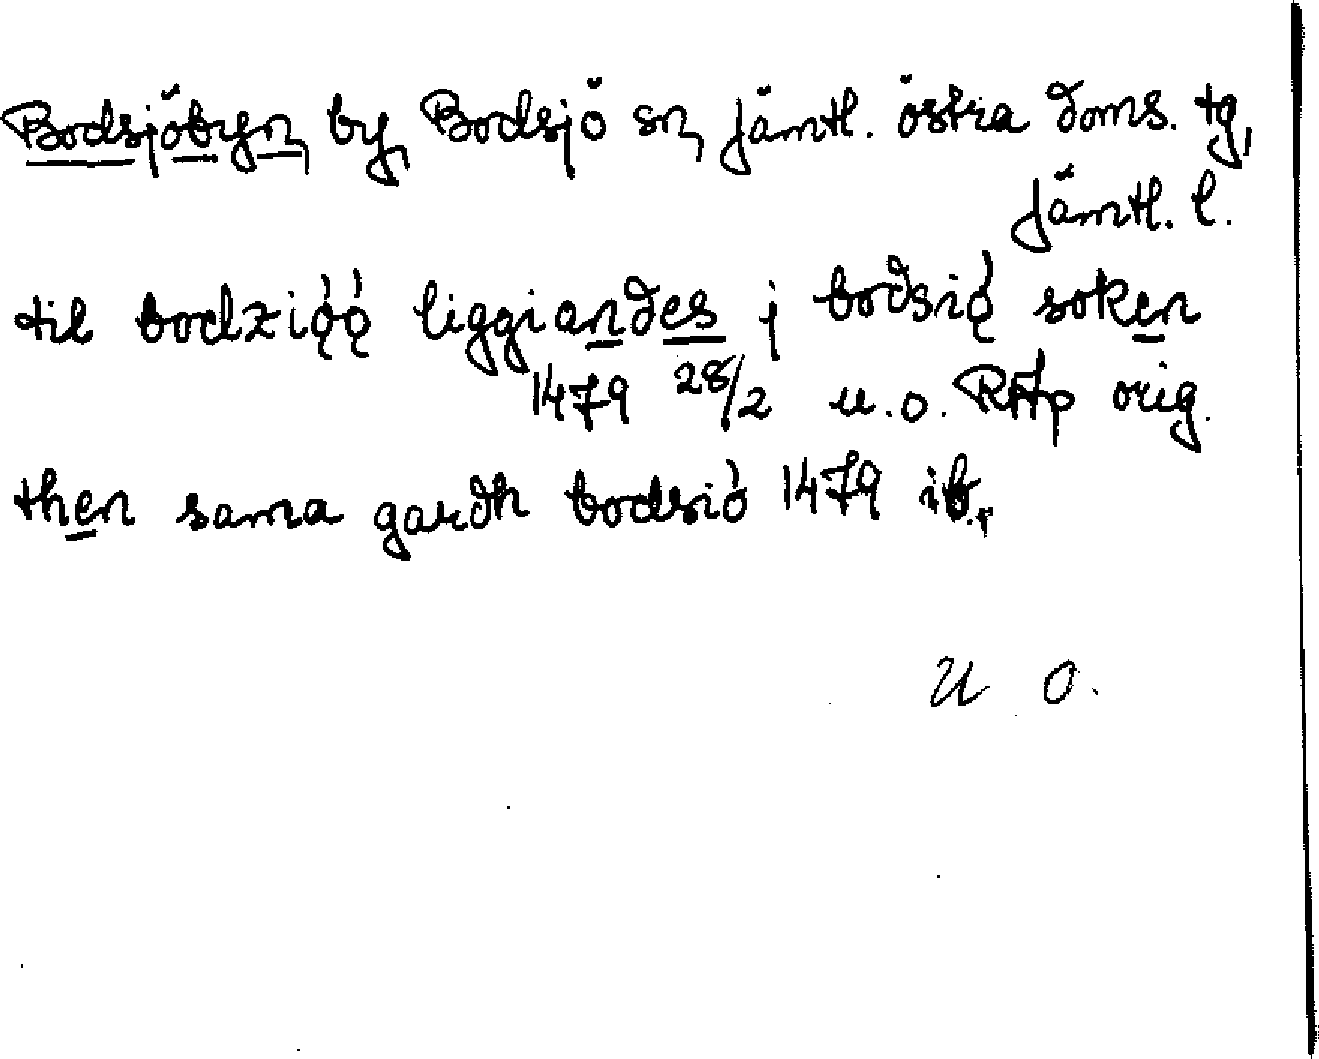 Bodsjöbyn, by, Bodsjö sn, Jämtl. östra doms. tg,
Jämtl. l.
til bodziǫ́ǫ́ liggiandes j bodsiǫ́ soken
1479 28/2 u.o. RAp orig.
then sama gardh bodsió 1479 ib.
U O.